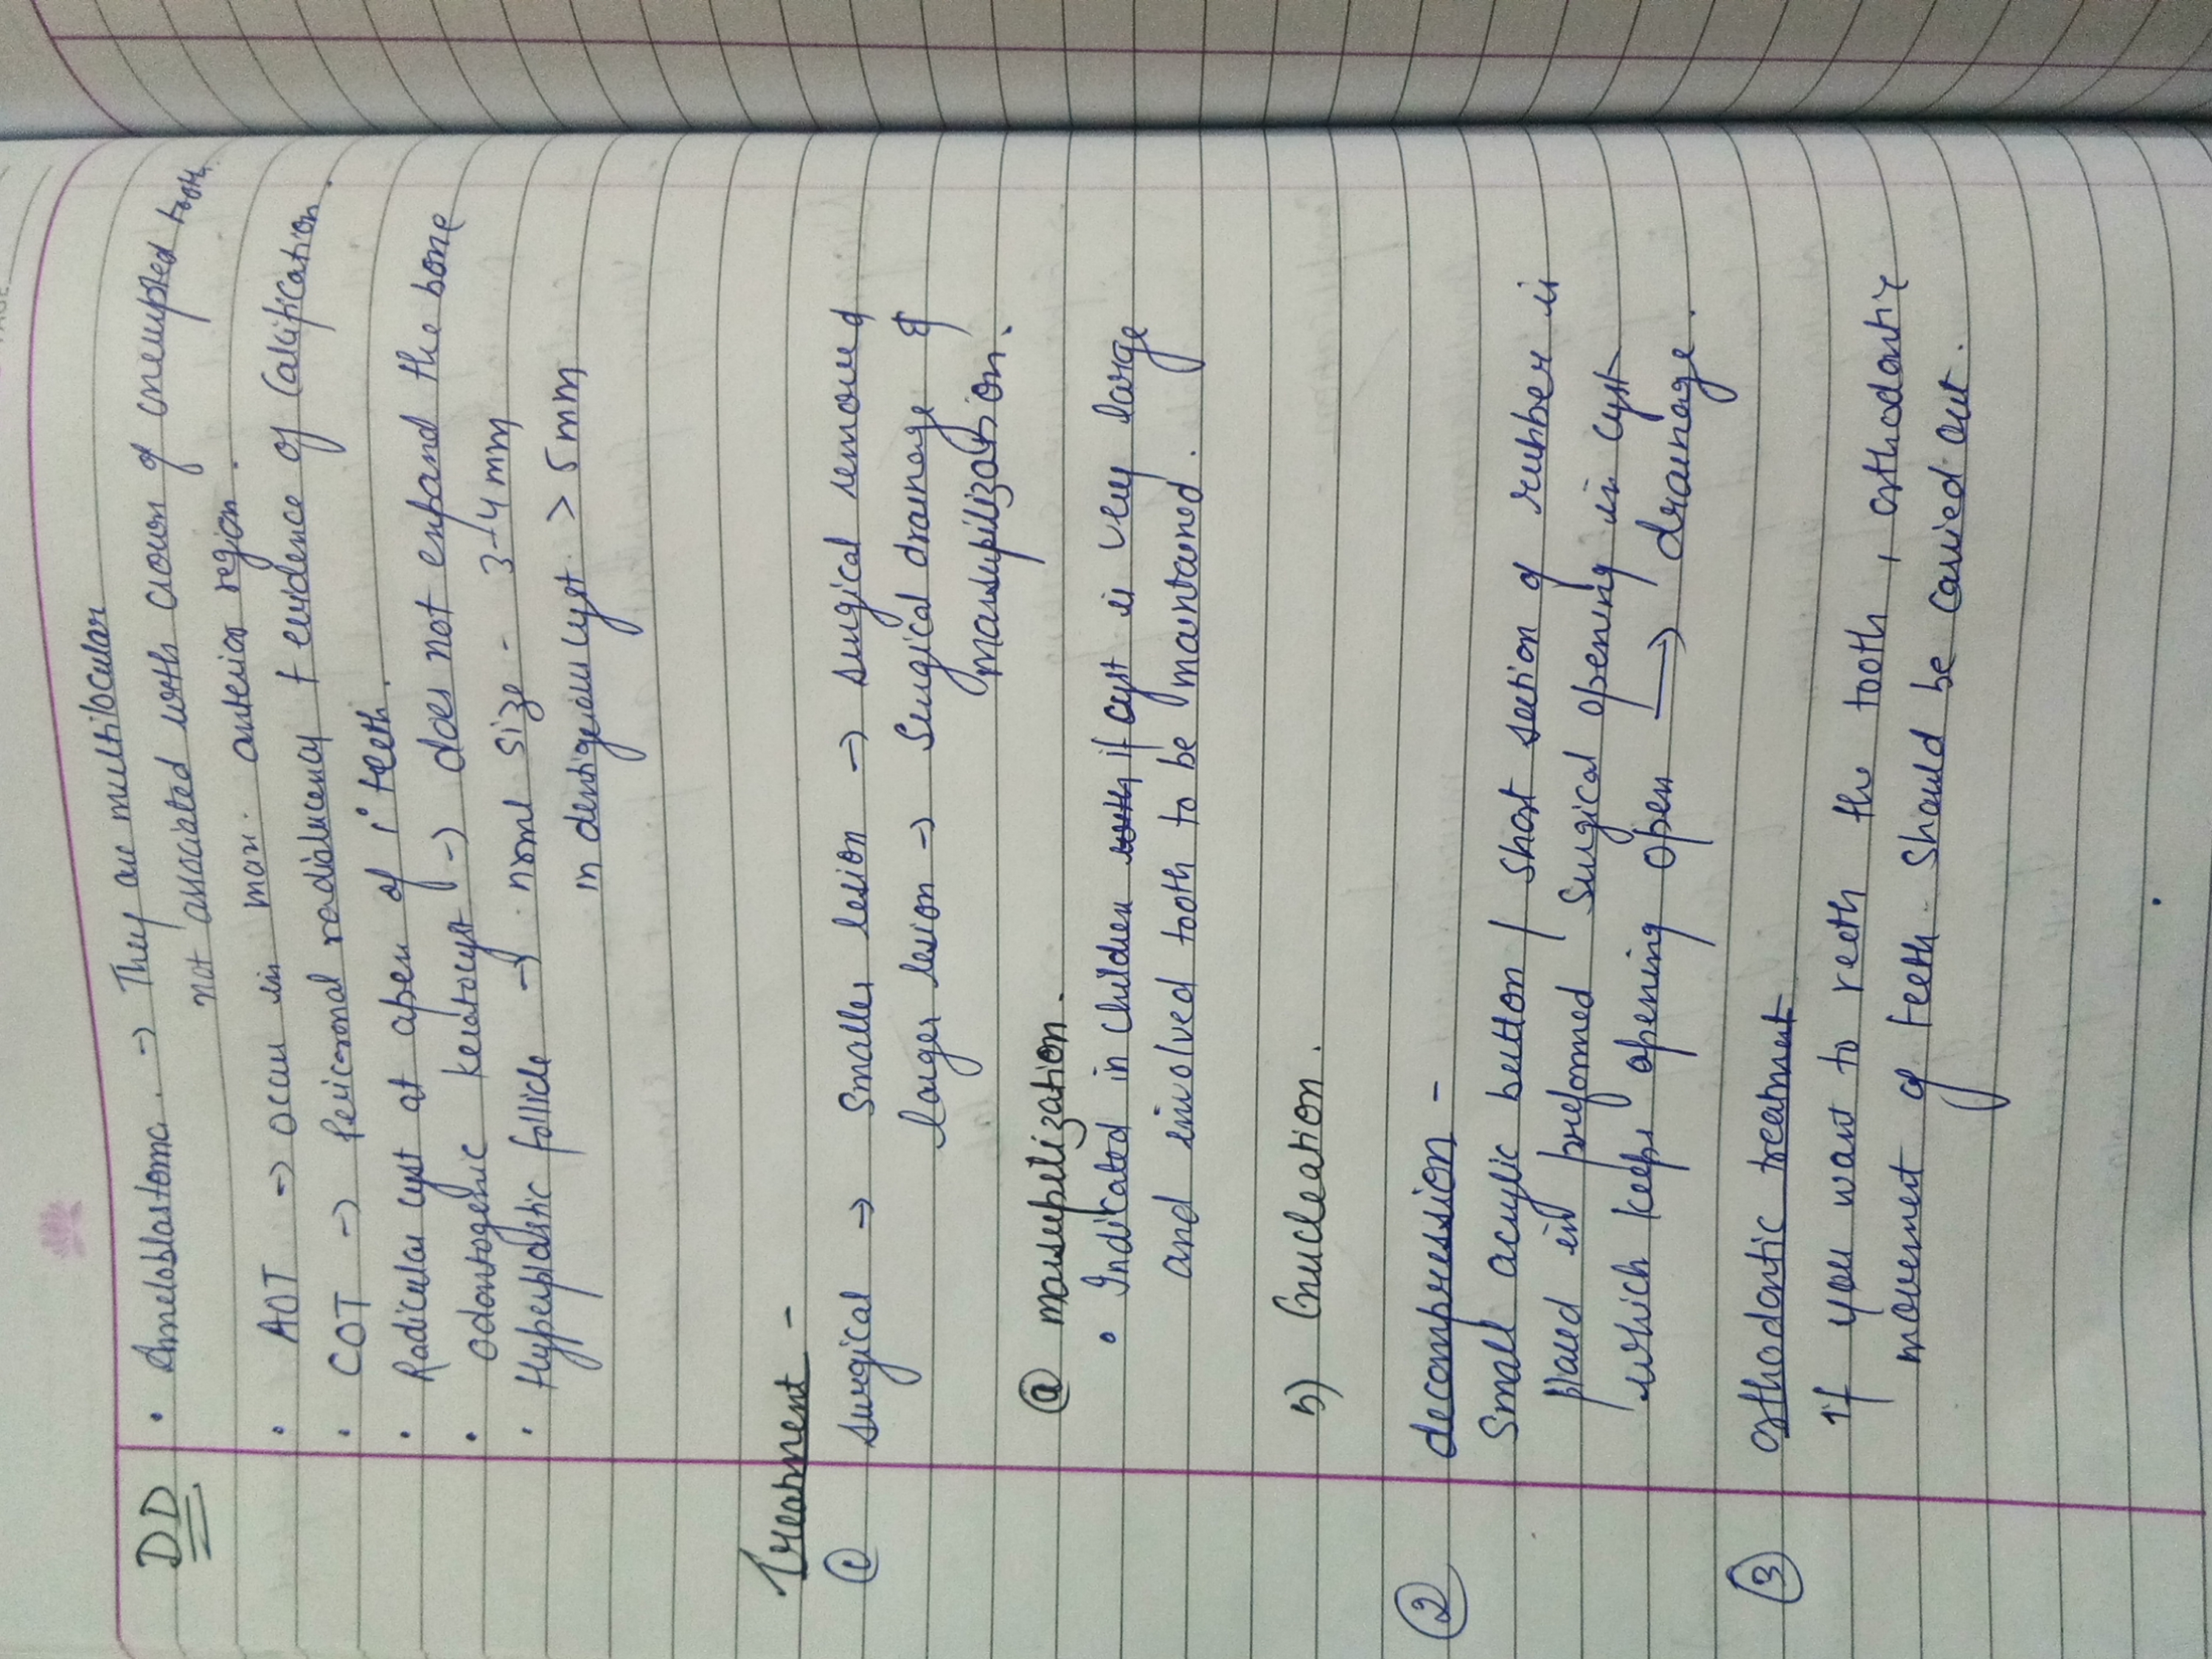 DD • Ameloblastoma. → They are multilocular
not associated with crown of unerupted tooth.
• AOT → occur in max. anterior region.
• COT → Pericoronal radiolucency + evidence of Calcification.
• Radicular cyst at apex of i° teeth.
• odontogenic keratocyst → does not expand the bone
• Hyperplastic follicle → normal size - 3-4 mm
in dentigerous cyst > 5 mm
Treatment -
① surgical → Smaller lesion → surgical removal
larger lesion → Surgical drainage &
marsupilization.
ⓐ marsupilization.
• Indicated in children if cyst is very large
and involved tooth to be maintained.
b) Enucleation.
② decompression -
Small acrylic button / short section of rubber is
placed in preformed surgical opening in cyst
which keeps opening open → drainage.
③ orthodontic treatment
if you want to reeth the tooth, orthodontic
movement of teeth should be carried out.